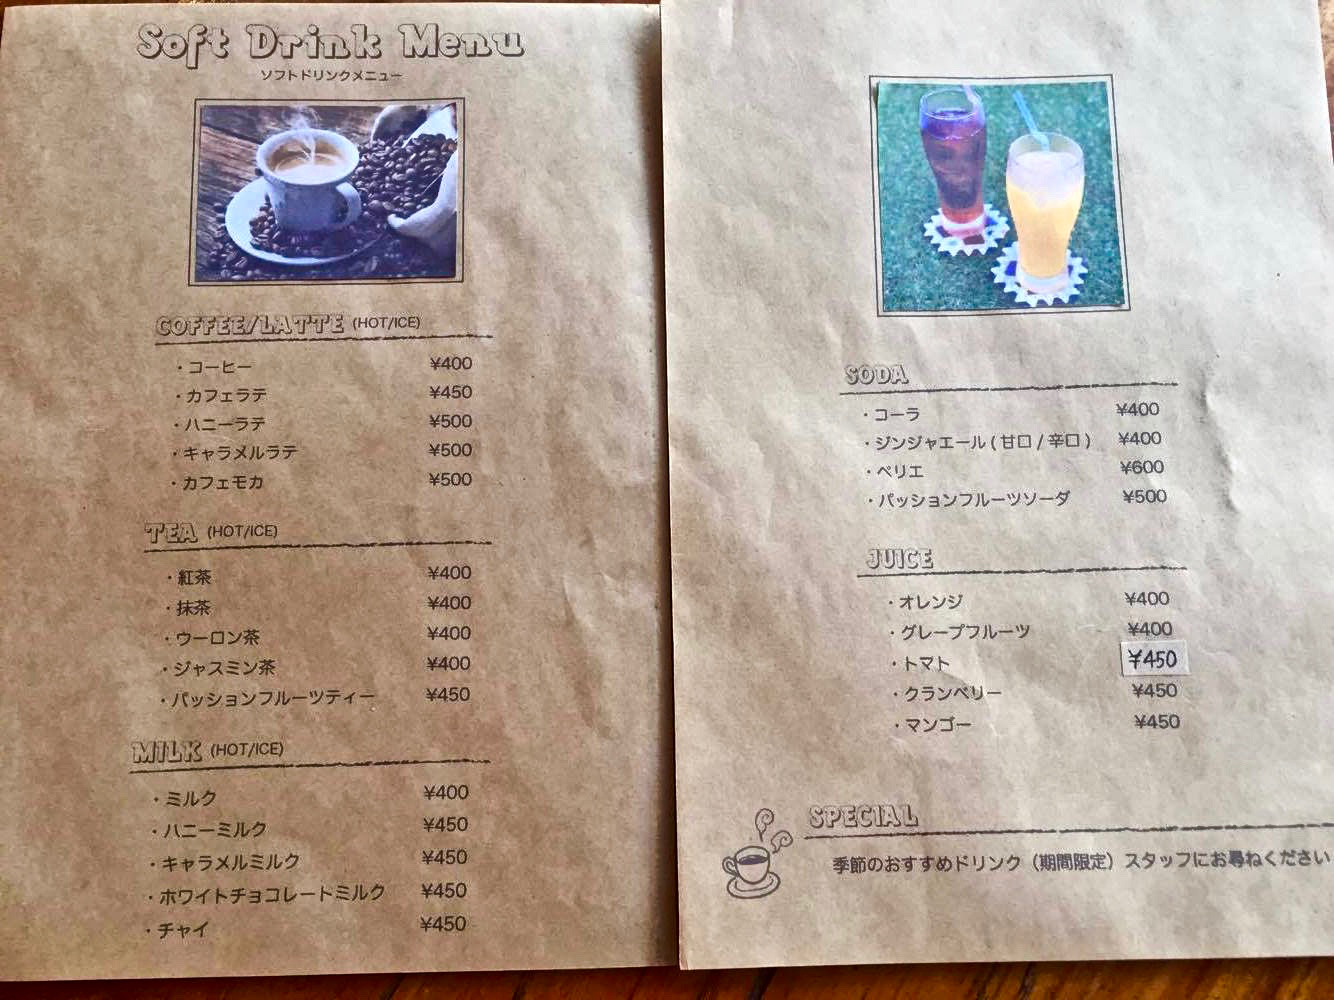 Soft Drink Menu
ソフトドリンクメニュー
COFFEE/LATTE (HOT/ICE)
・コーヒー ¥400
・カフェラテ ¥450
・ハニーラテ ¥500
・キャラメルラテ ¥500
・カフェモカ ¥500
TEA (HOT/ICE)
・紅茶 ¥400
・抹茶 ¥400
・ウーロン茶 ¥400
・ジャスミン茶 ¥400
・パッションフルーツティー ¥450
MILK (HOT/ICE)
・ミルク ¥400
・ハニーミルク ¥450
・キャラメルミルク ¥450
・ホワイトチョコレートミルク ¥450
・チャイ ¥450
SODA
・コーラ ¥400
・ジンジャエール ( 甘口 / 辛口 ) ¥400
・ペリエ ¥600
・パッションフルーツソーダ ¥500
JUICE
・オレンジ ¥400
・グレープフルーツ ¥400
・トマト ¥450
・クランベリー ¥450
・マンゴー ¥450
SPECIAL
季節のおすすめドリンク（期間限定）スタッフにお尋ねください